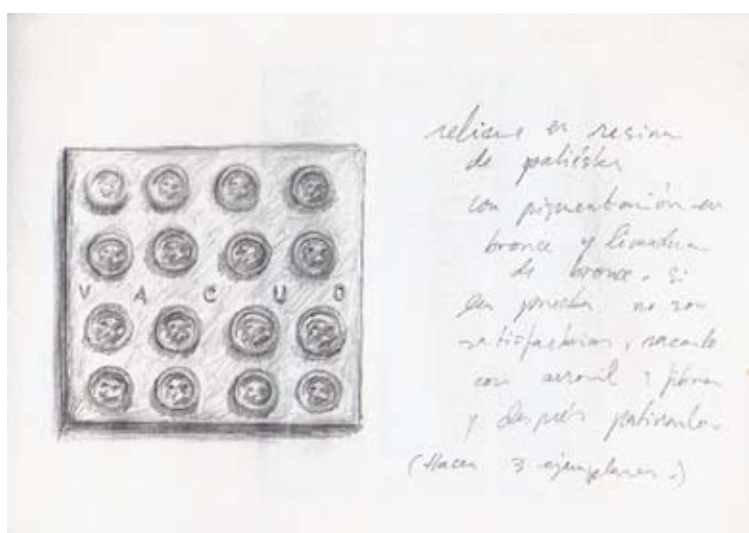 V A C U O
relieve en resina
de poliéster
con pigmentación en
bronce y limadura
de bronce. si
las pruebas no son
satisfactorias, sacarlo
con
y después patinarlo.
(Hacer 3 ejemplares.)